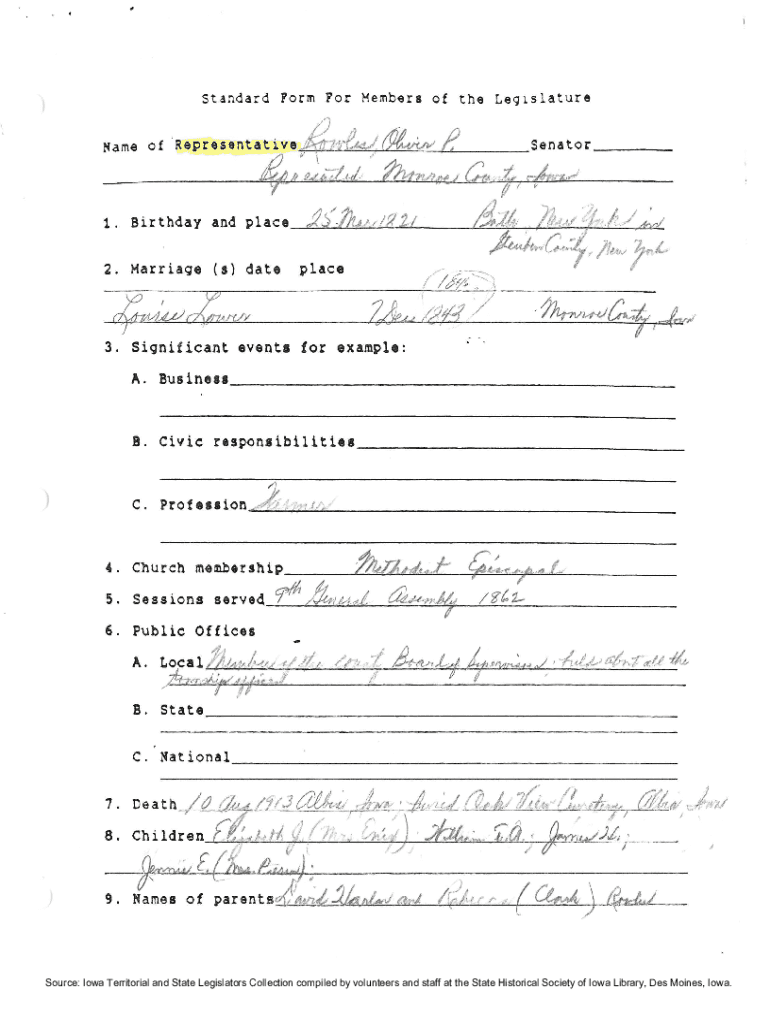 Standard Form For Members of the Legislature
Name of Representative Rowles, Oliver P. Senator
Represented Monroe County, Iowa
1. Birthday and place 25 Mar 1821 Bath, New York in
Steuben County, New York
2. Marriage (s) date place
Louise Lower 7 Dec 1843 Monroe County, Iowa
3. Significant events for example:
A. Business
B. Civic responsibilities
C. Profession Farmer
4. Church membership Methodist Episcopal
5. Sessions served 9th General Assembly 1862
6. Public Offices
A. Local Member of the county Board of Supervisors; held about all the
township offices
B. State
C. National
7. Death 10 Aug 1913 Albia, Iowa; buried Oak View Cemetery, Albia, Iowa
8. Children Elizabeth J. (Mrs. ); William T.A.; James H.;
Jennie E. (Mrs. );
9. Names of parents David Harlan and Rebecca (Clark) Rowles
Source: Iowa Territorial and State Legislators Collection compiled by volunteers and staff at the State Historical Society of Iowa Library, Des Moines, Iowa.